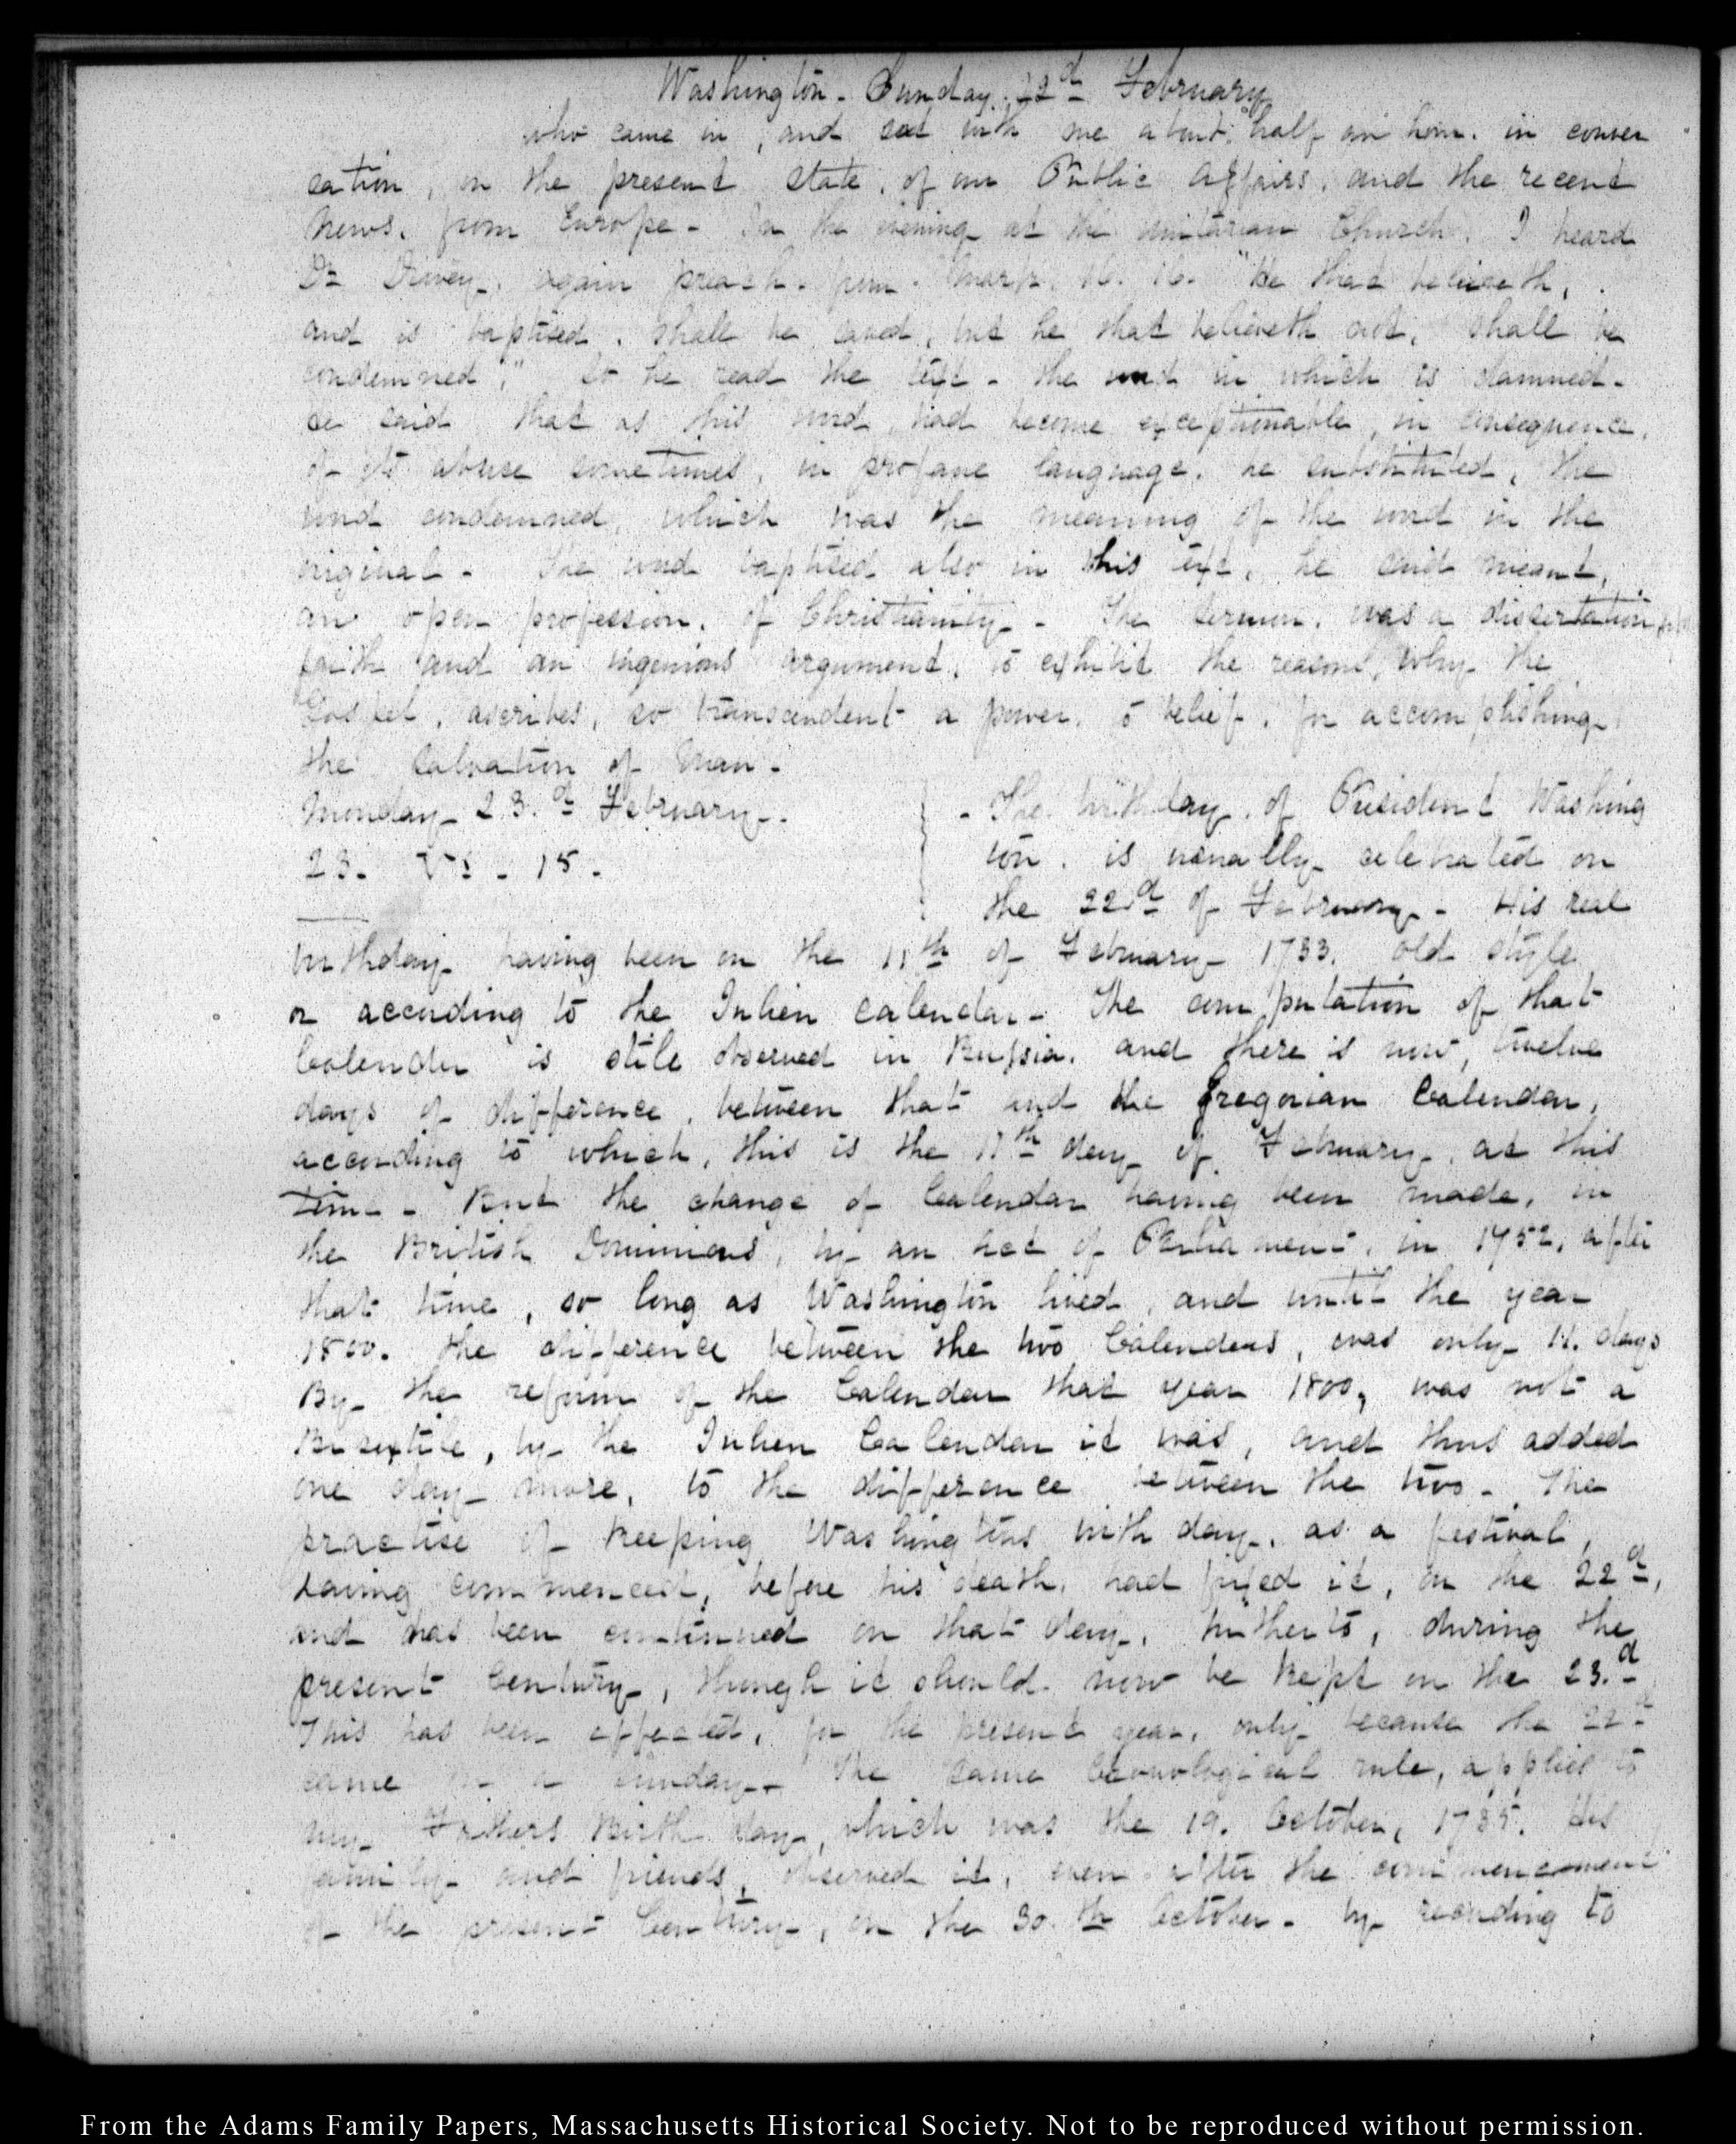 Washington. Sunday. 22d. February
who came in, and sat with me about half an hour. in conver
sation, on the present state, of our Public Affairs. and the recent
News. from Europe- In the evening at the Unitarian Church. I heard
Dr Dewey. again preach. from. Mark. 16. 16. "He that believeth,
and is baptised. shall be saved, but he that believeth not, shall be
condemned"," So he read the text- the word in which is damned-
he said that as this word, had become exceptionable, in consequence,
of its abuse sometimes, in profane language. he substituted, the
word condemned, which was the meaning of the word in the
original- The word baptised also in this text, he said meant,
an open profession. of Christianity- The sermon. was a dissertation
faith and an ingenious argument, to exhibit the reasons, why the
Gospel, ascribes, so transcendent a power. to belief. for accomplishing
the Salvation of Man-
Monday 23.d February.
23. V. 15.
- The birthday. of President Washing
ton. is usually celebrated on
the 22d. of February- His real
birthday having been on the 11th of February 1733. old style
or according to the Julien calendar- The computation of that
Calender is stile observed in Russia. and there is now, twelve
days of difference, between that and the Gregorian Calendar,
according to which, this is the 11th day of February, at this
time- But the change of Calendar having been made, in
the British Dominions, by an Act of Parliament, in 1752, after
that time, so long as Washington lived, and until the year
1800. the difference between the two Calenders, was only 11. days
By the reform of the Calendar that year 1800, was not a
Bisextile, by the Julien Calendar it was, and thus added
one day more, to the difference between the two- The
practise of keeping Washingtons birth day, as a festival,
having commenced, before his death, had fixed it, on the 22d,
and has been continued on that day, hitherto, during the
present Century, though it should now be kept on the 23.d
This has been effected, for the present year, only because the 22d
came on a Sunday- The same Chronological rule, applies to
my Fathers Birth day, which was the 19. October, 1735. His
family and friends, observed it, even after the commencement
of the present Century, on the 30.th October- by according to
From the Adams Family Papers, Massachusetts Historical Society. Not to be reproduced without permission.